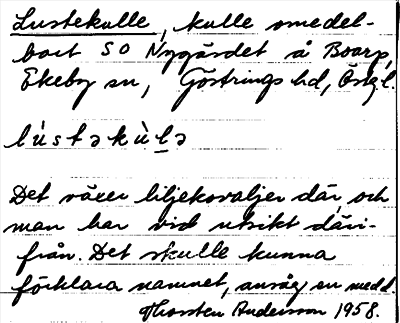 Lustekulle, kulle omedel-
bart SO Nygärdet å Boarp,
Ekeby sn, Göstrings hd, Ögl.
lùstəkùlə
Det växer liljekovaljer där, och
man har vid utsikt däri-
från. Det skulle kunna
förklara namnet, ansåg en medd.
Thorsten Andersson 1958.